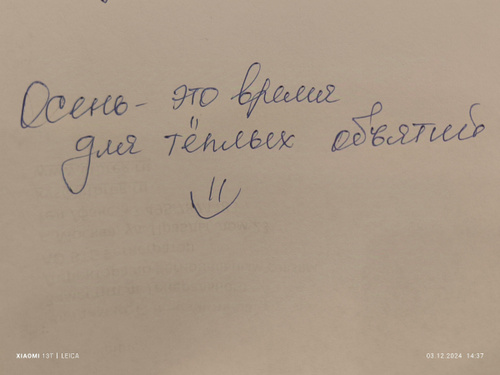 Осень - это время
для тёплых объятий
XIAOMI 13T | LEICA
03.12.2024 14:37